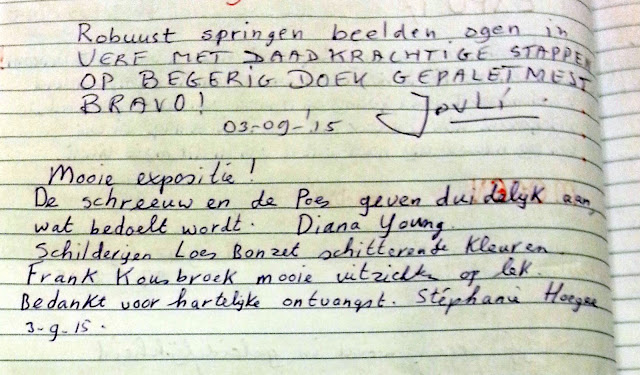 Robuust springen beelden ogen in
VERF MET DAADKRACHTIGE STAPPEN
OP BEGERIG DOEK GEPALETMEST
BRAVO!
03-09-'15 JOULÍ
Mooie expositie!
De schreeuw en de Poes geven duidelijk aan,
wat bedoelt wordt. Diana Young.
Schilderijen Loes Bonzet schitterende kleuren.
Frank Kousbroek mooie uitzichten op lek.
Bedankt voor hartelijke ontvangst. Stéphanie
3-9-15.